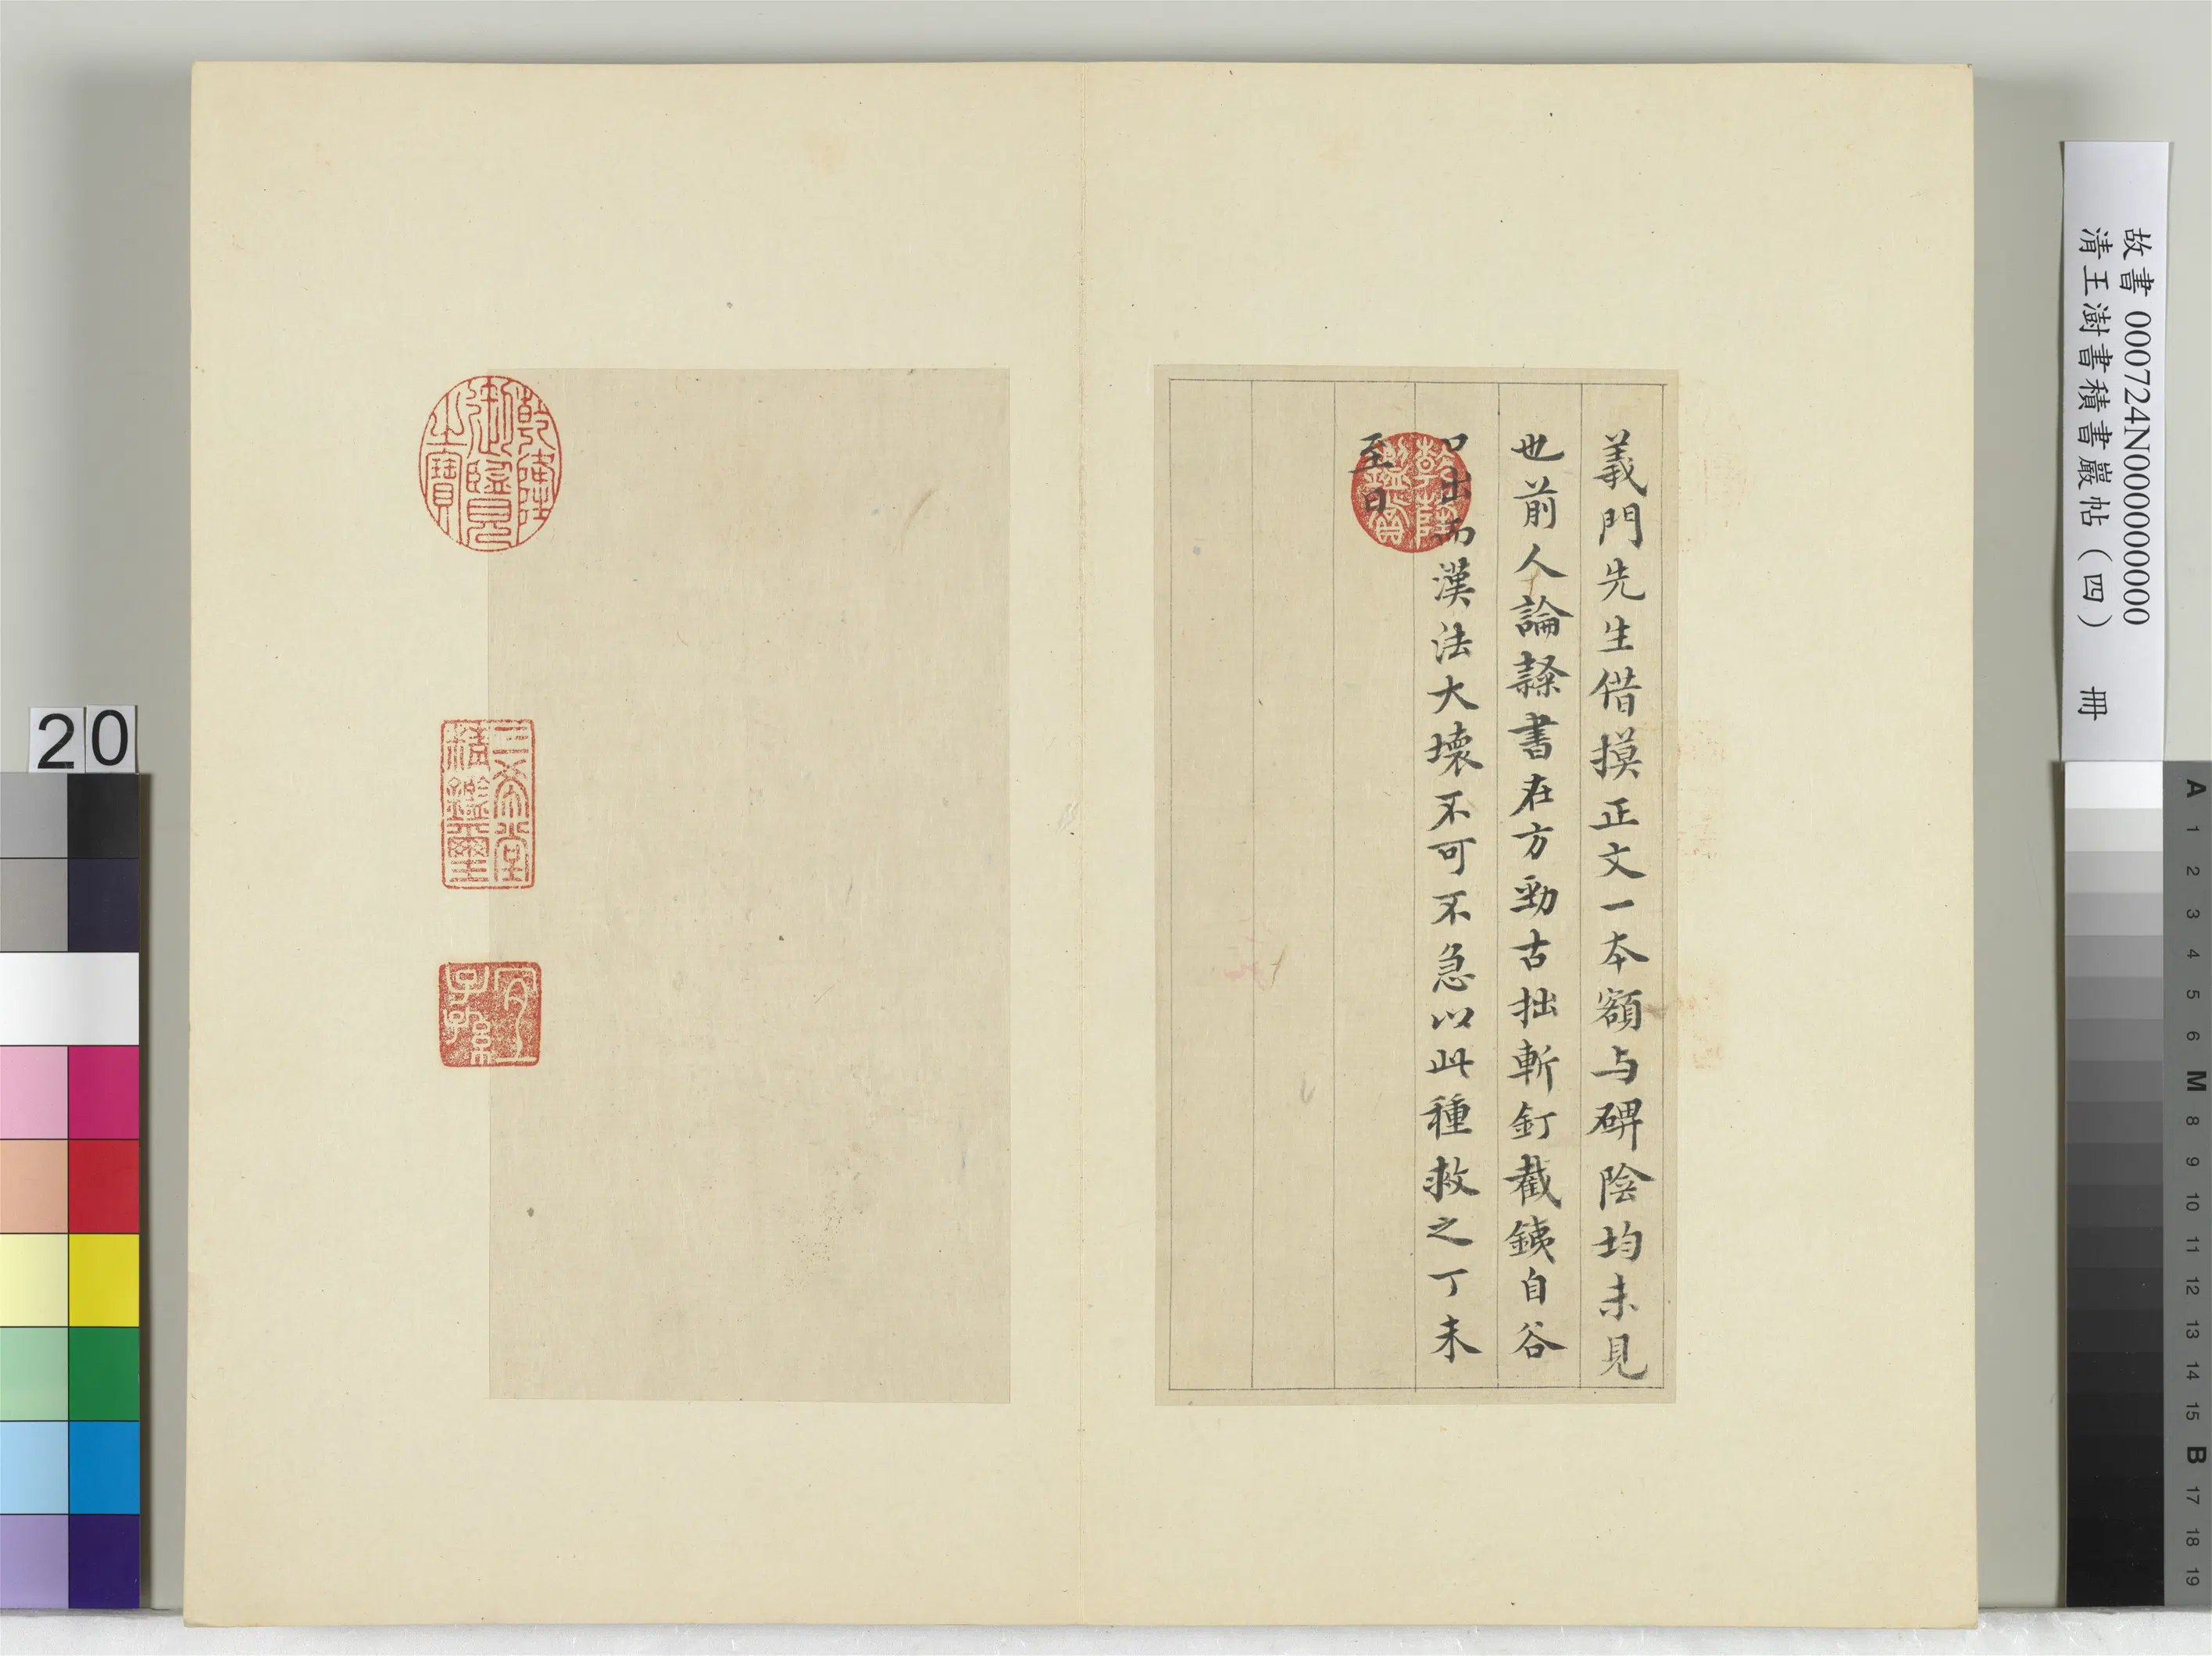 義門先生借摸正文一本額与碑陰均未見
也前人論隸書在方勁古拙斬釘截鐵自谷
口出而漢法大壞不可不急以此種救之丁未
至日
乾隆御覽之寶
三希堂精鑑璽
宜子孫
故書 000724N000000000
清王澍書積書巖帖（四） 冊
20
A 1 2 3 4 5 6 M 8 9 10 11 12 13 14 15 B 17 18 19